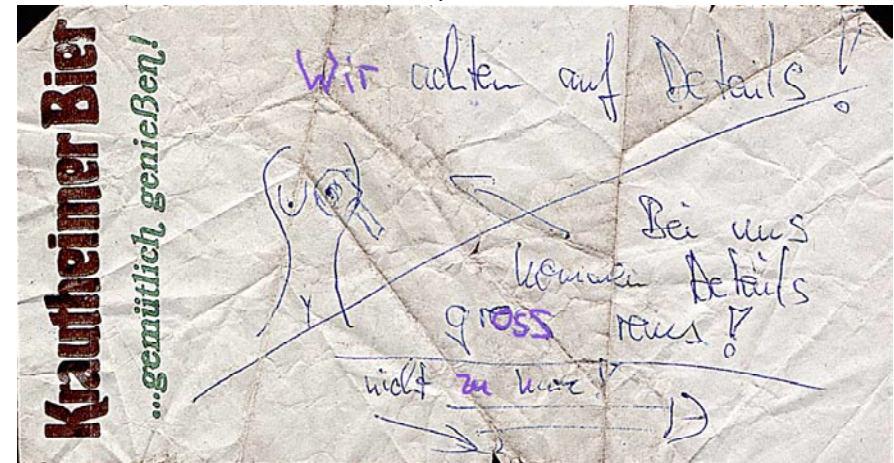 Krautheimer Bier
...gemütlich genießen!
Wir achten auf Details!
Bei uns
kommen Details
gross raus!
nicht zu kurz!